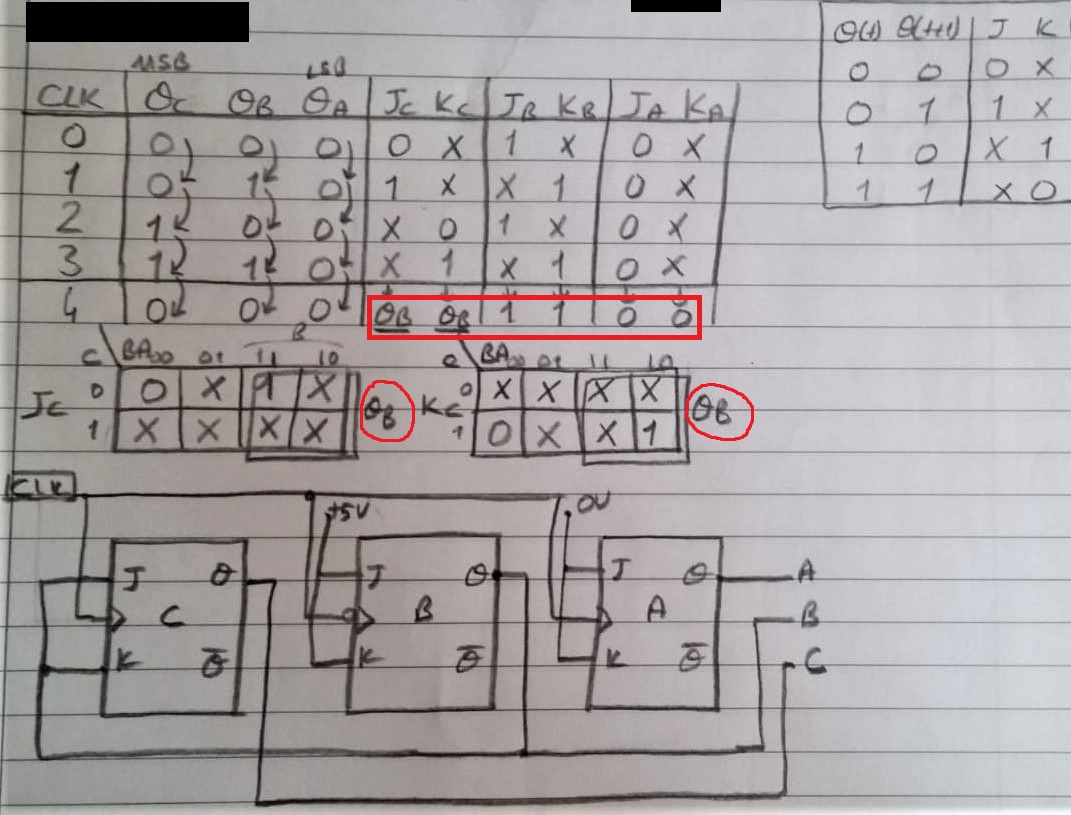 MSB LSB
CLK QC QB QA JC KC JB KB JA KA
0 0 0 0 0 X 1 X 0 X
1 0 1 0 1 X X 1 0 X
2 1 0 0 X 0 1 X 0 X
3 1 1 0 X 1 X 1 0 X
4 0 0 0 QB QB 1 1 0 0
Q(t) Q(t+1) J K
0 0 0 X
0 1 1 X
1 0 X 1
1 1 X 0
B
C BA 00 01 11 10
JC 0 0 X 1 X QB
1 X X X X
C BA 00 01 11 10
KC 0 X X X X QB
1 0 X X 1
CLK +5V 0V
J Q J Q J Q A
C B A B
K Q̅ K Q̅ K Q̅ C